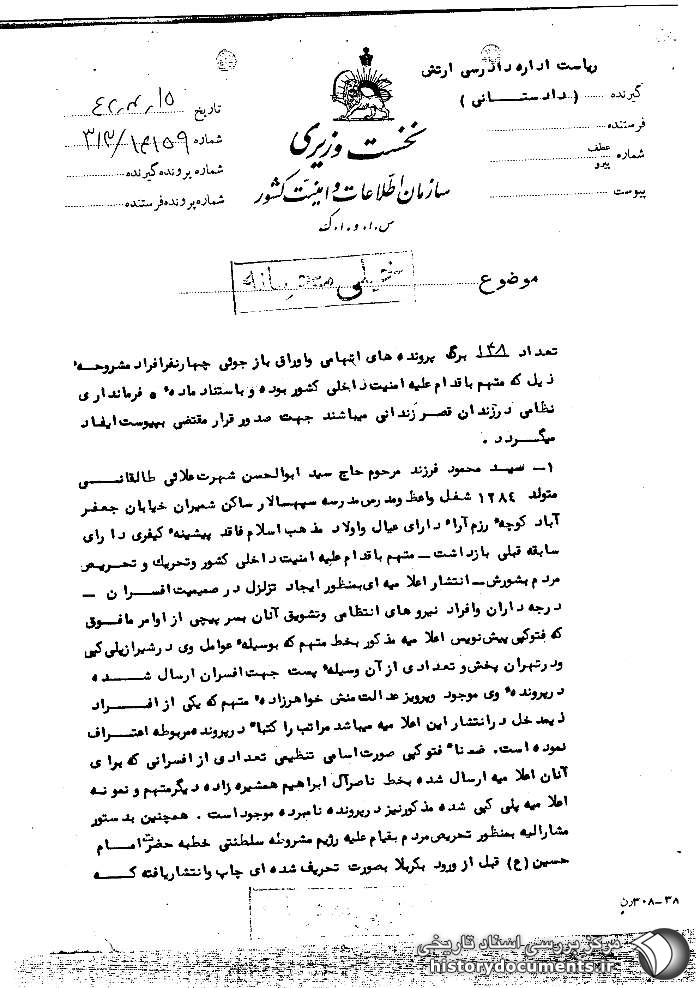 ریاست اداره دادرسی ارتش
گیرنده (دادستانی)
فرستنده
شماره عطف پیرو
پیوست
نخست وزیری
سازمان اطلاعات و امنیت کشور
س.ا.و.ا.ک
تاریخ ۴۲٫۴٫۱۵
شماره ۳۱۲/۱۴۱۵۹
شماره پرونده گیرنده
شماره پرونده فرستنده
موضوع
خیلی محرمانه
تعداد ۱۴۸ برگ پرونده های اتهامی و اوراق بازجوئی چهارنفر افراد مشروحهٔ
ذیل که متهم باقدام علیه امنیت داخلی کشور بوده و باستناد ماده ۵ فرمانداری
نظامی در زندان قصر زندانی میباشند جهت صدور قرار مقتضی بپیوست ایفاد
میگردد .
۱ــ سید محمود فرزند مرحوم حاج سید ابوالحسن شهرت علائی طالقانی
متولد ۱۲۸۴ شغل واعظ ومدرس مدرسه سپهسالار ساکن شمیران خیابان جعفر
آباد کوچهٔ رزم آراء دارای عیال واولاد مذهب اسلام فاقد پیشینهٔ کیفری دارای
سابقه قبلی بازداشت ــ متهم باقدام علیه امنیت داخلی کشور وتحریک و تحریص
مردم بشورش ــ انتشار اعلامیه ای بمنظور ایجاد تزلزل در صمیمیت افسران ــ
درجه داران وافراد نیروهای انتظامی وتشویق آنان بسر پیچی از اوامر مافوق
که فتوکپی پیش نویس اعلامیه مذکور بخط متهم که بوسیلهٔ عوامل وی در شیراز پلی کپی
ودر تهران پخش و تعدادی از آن وسیلهٔ پست جهت افسران ارسال شده
در پروندهٔ وی موجود وپرویز عدالت منش خواهرزادهٔ متهم که یکی از افراد
ذیمدخل در انتشار این اعلامیه میباشد مراتب را کتباً در پرونده مربوطه اعتراف
نموده است. ضمناً فتوکپی صورت اسامی تنظیمی تعدادی از افسرانی که برای
آنان اعلامیه ارسال شده بخط ناصر آل ابراهیم همشیره زاده دیگر متهم و نمونه
اعلامیه پلی کپی شده مذکور نیز در پرونده نامبرده موجود است . همچنین بدستور
مشارالیه بمنظور تحریص مردم بقیام علیه رژیم مشروطه سلطنتی خطبه حضرت امام
حسین (ع) قبل از ورود بکربلا بصورت تحریف شده ای چاپ وانتشار یافته که
۳۸ــ۳۰۸
مرکز بررسی اسناد تاریخی
historydocuments.ir